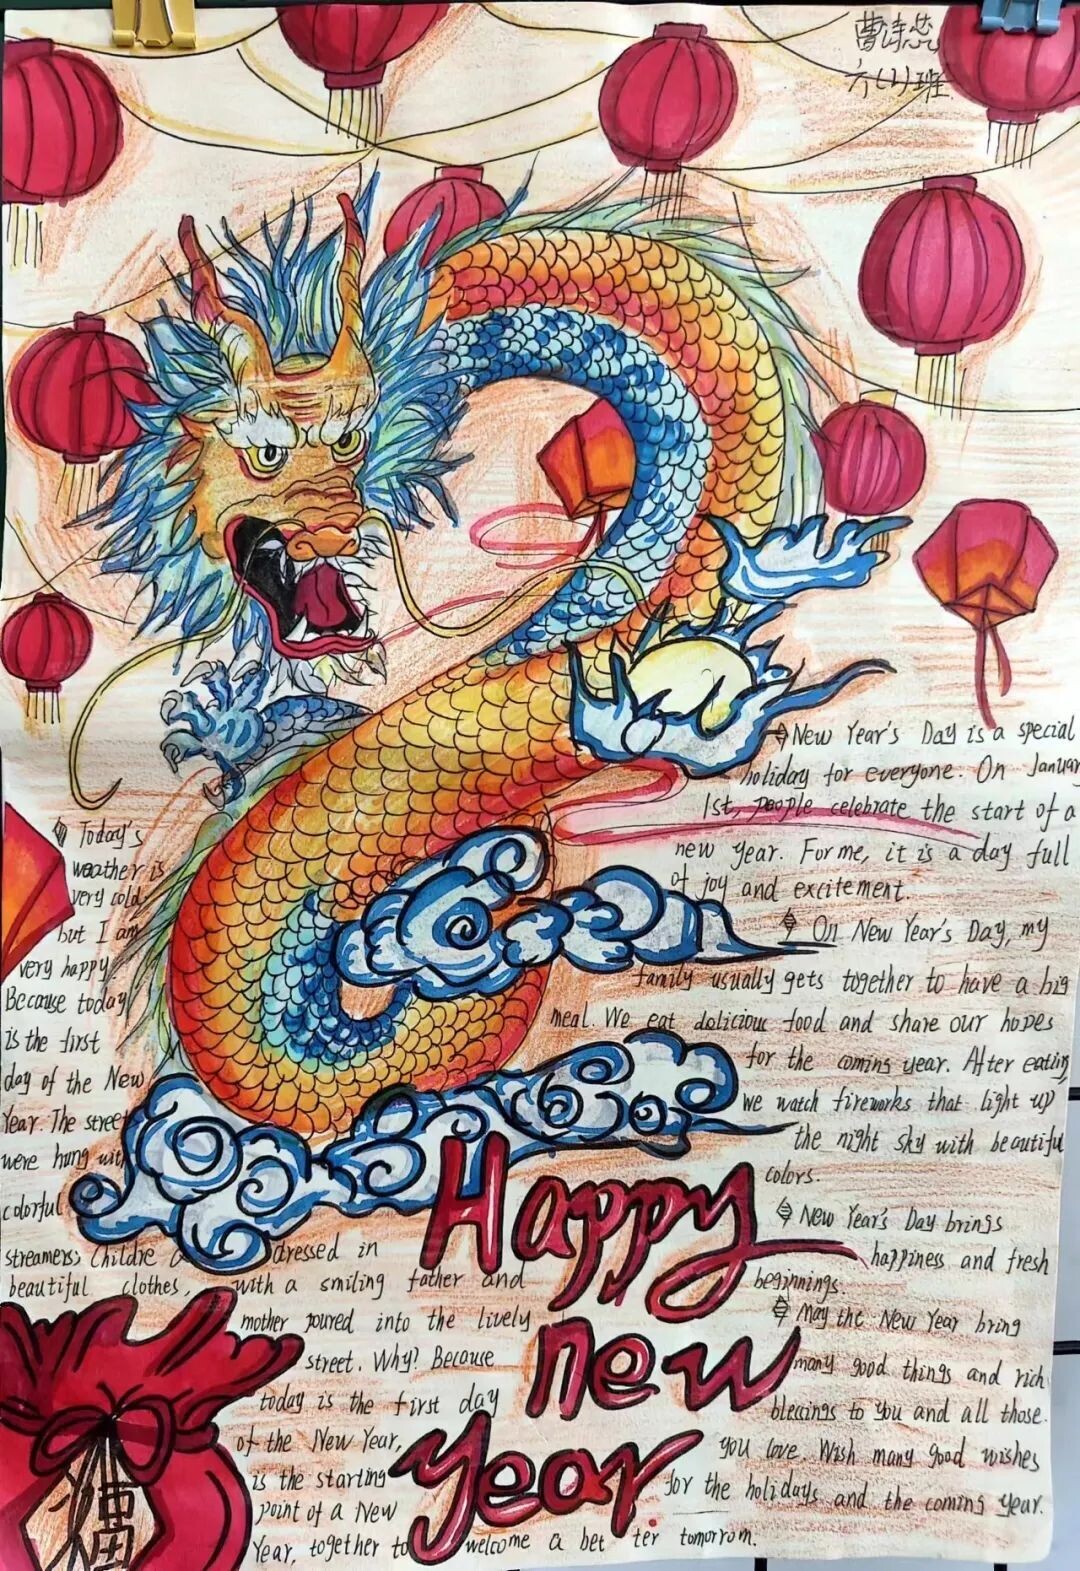 曹诗蕊
六(2)班
New Year's Day is a special
holiday for everyone. On Januar
1st, people celebrate the start of a
new year. For me, it is a day full
of joy and excitement.
On New Year's Day, my
family usually gets together to have a big
meal. We eat delicious food and share our hopes
for the coming year. After eating,
we watch fireworks that light up
the night sky with beautiful
colors.
New Year's Day brings
happiness and fresh
beginnings.
May the New Year bring
many good things and rich
blessings to you and all those
you love. Wish many good wishes
for the holidays and the coming year.
Today's
weather is
very cold,
but I am
very happy.
Because today
is the first
day of the New
Year. The street
were hung with
colorful
streamers; Childre dressed in
beautiful clothes, with a smiling father and
mother poured into the lively
street. Why? Because
today is the first day
of the New Year,
is the starting
point of a New
Year, together to welcome a bet ter tomorrom.
Happy
new
year
福